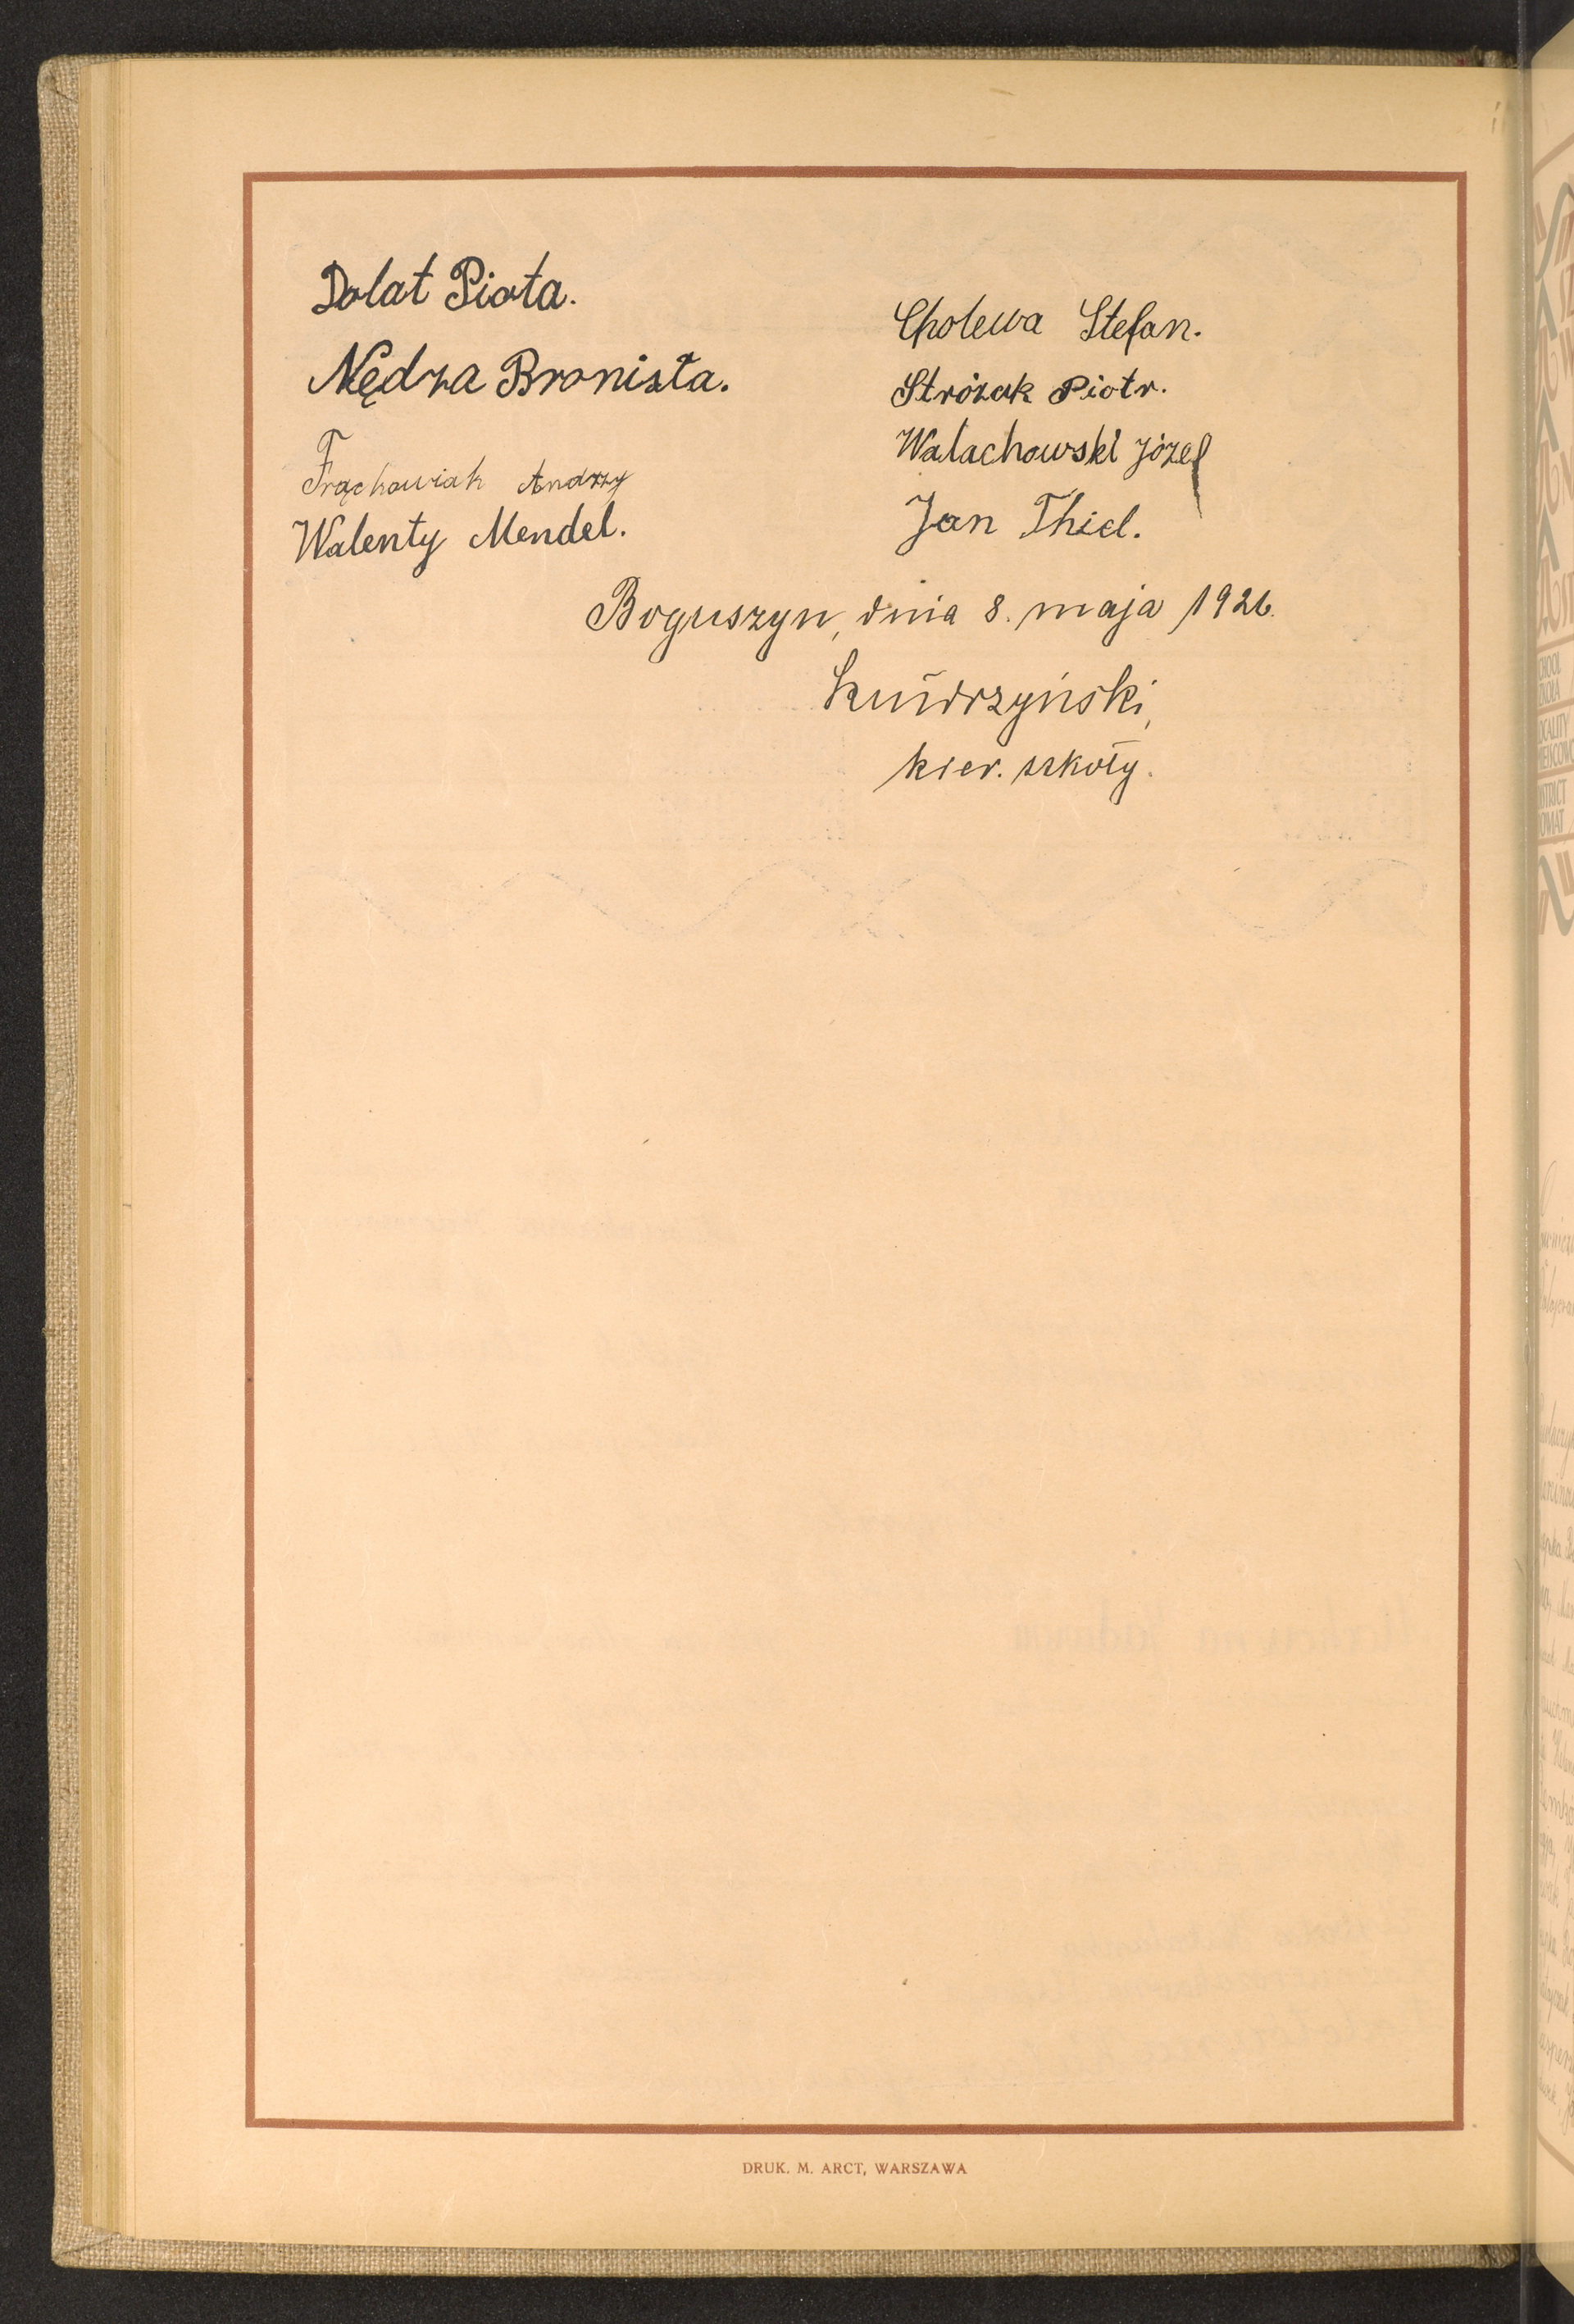 Dolat Piota.
Nędza Bronista.
Frąckowiak Andrzy
Walenty Mendel.
Cholewa Stefan.
Stróżak Piotr.
Walachowski Józef
Jan Thiel.
Boguszyn, dnia 8. maja 1926.
kier. szkoły.
DRUK. M. ARCT, WARSZAWA